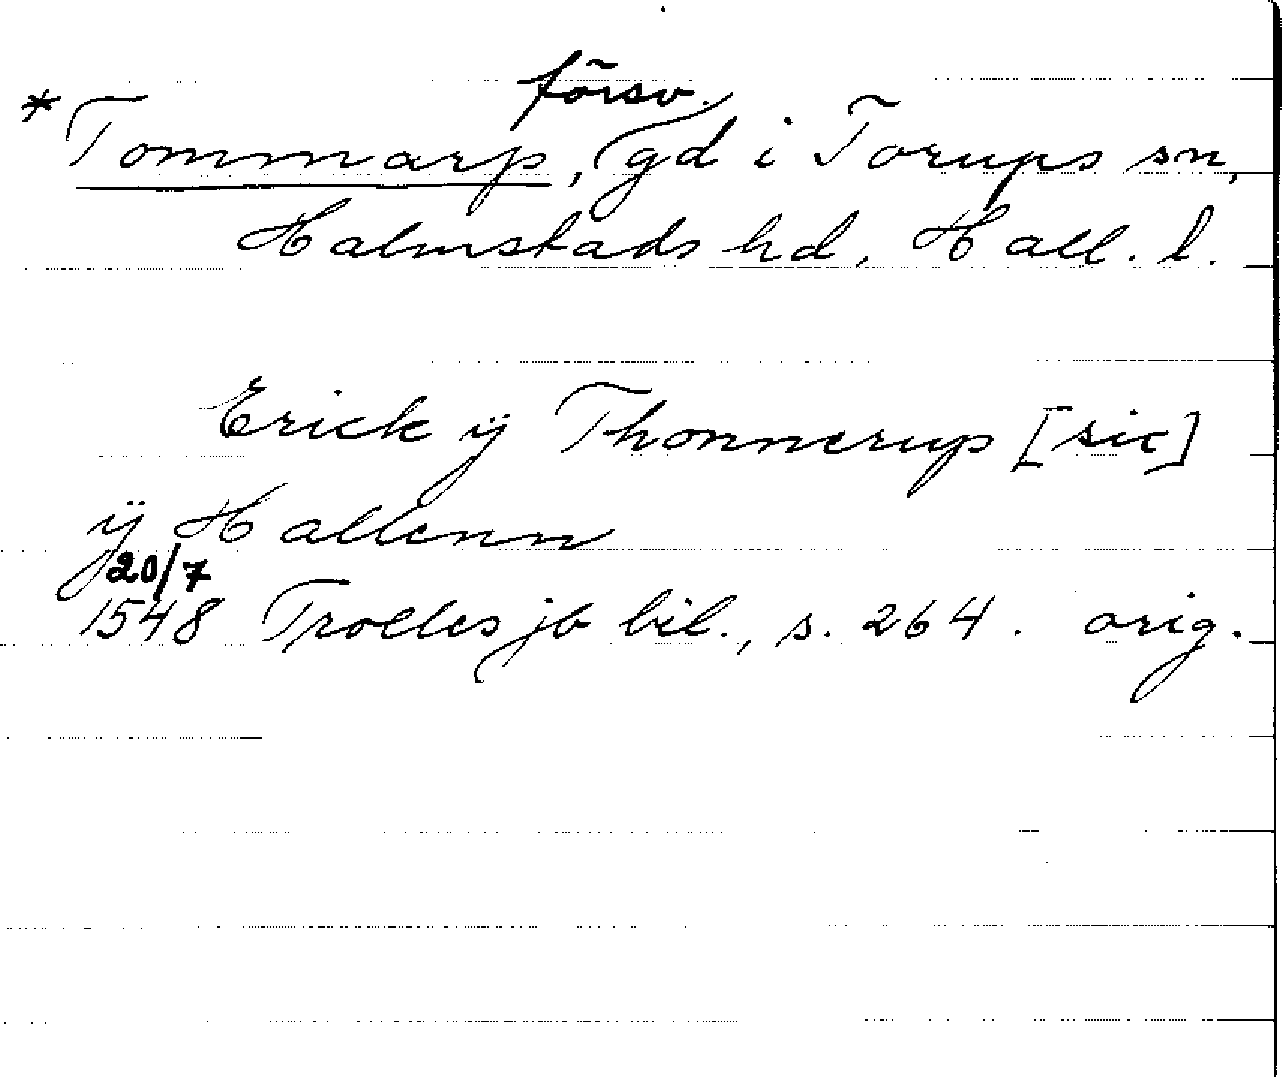 *Tommarp, försv. gd i Torups sn,
Halmstads hd, Hall. l.
Erick ÿ Thonnerup [sic]
ÿ Hallenn
20/7
1548 Trolles jb bil., s. 264. orig.